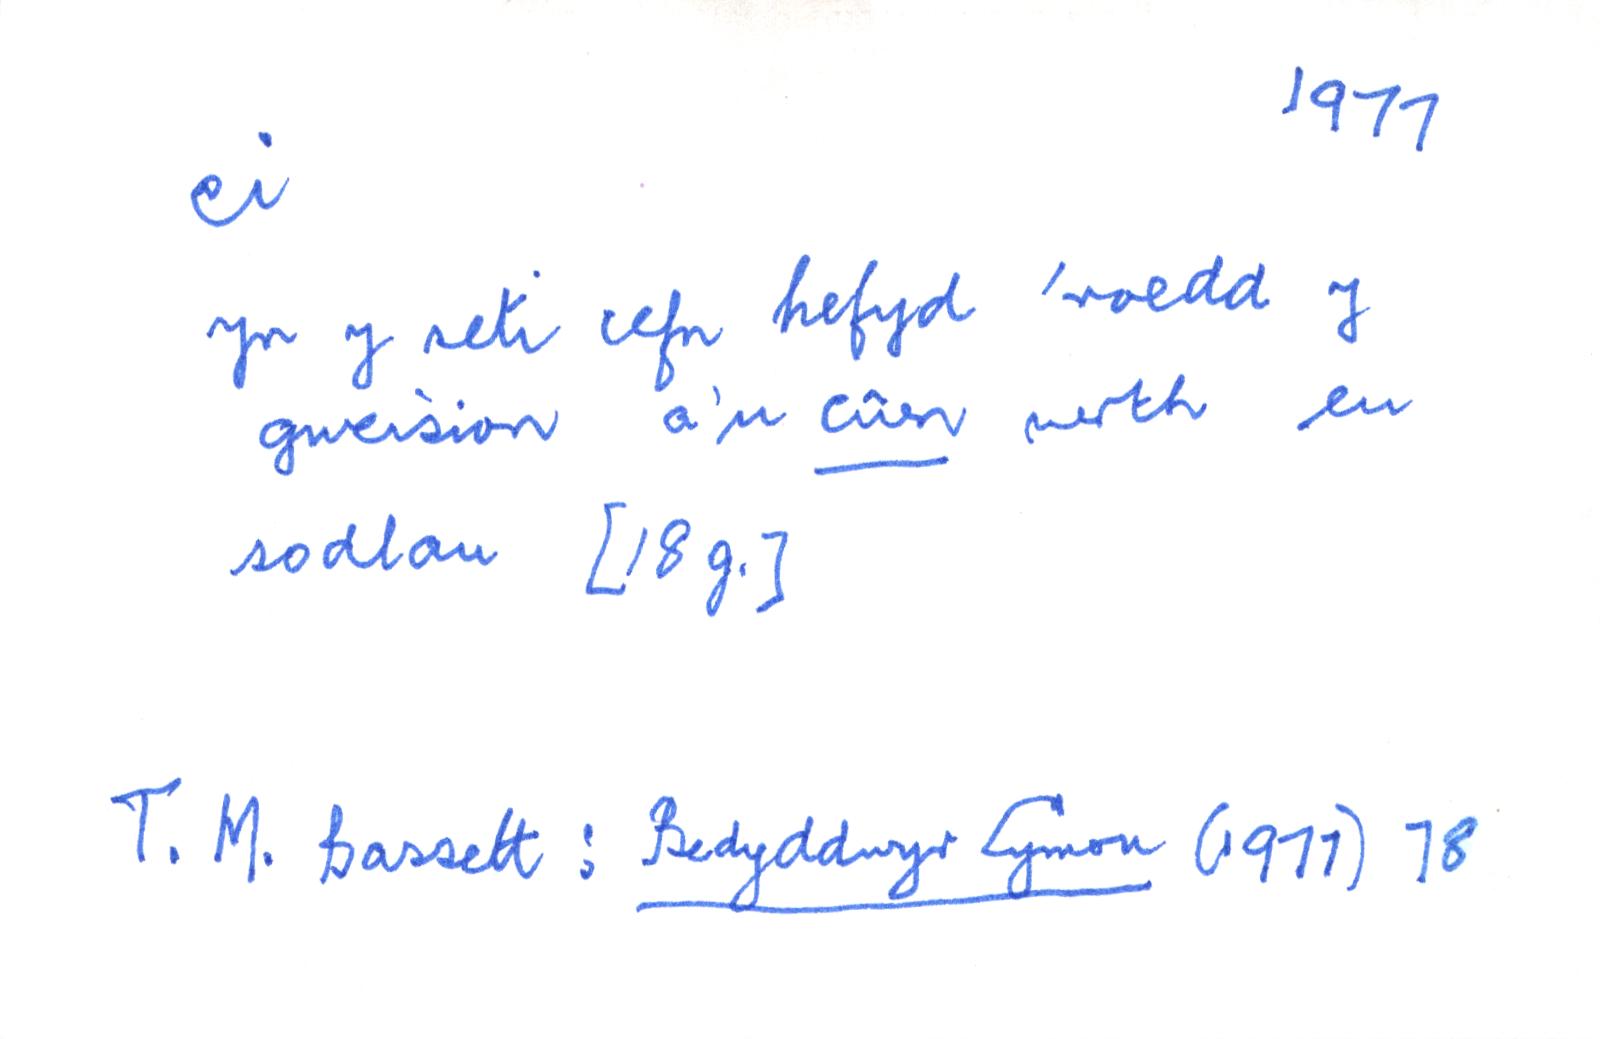 1977
ci
yn y seti cefn hefyd 'roedd y
gweision a'u cŵn wrth eu
sodlau [18 g.]
T. M. Bassett : Bedyddwyr Cymru (1977) 78